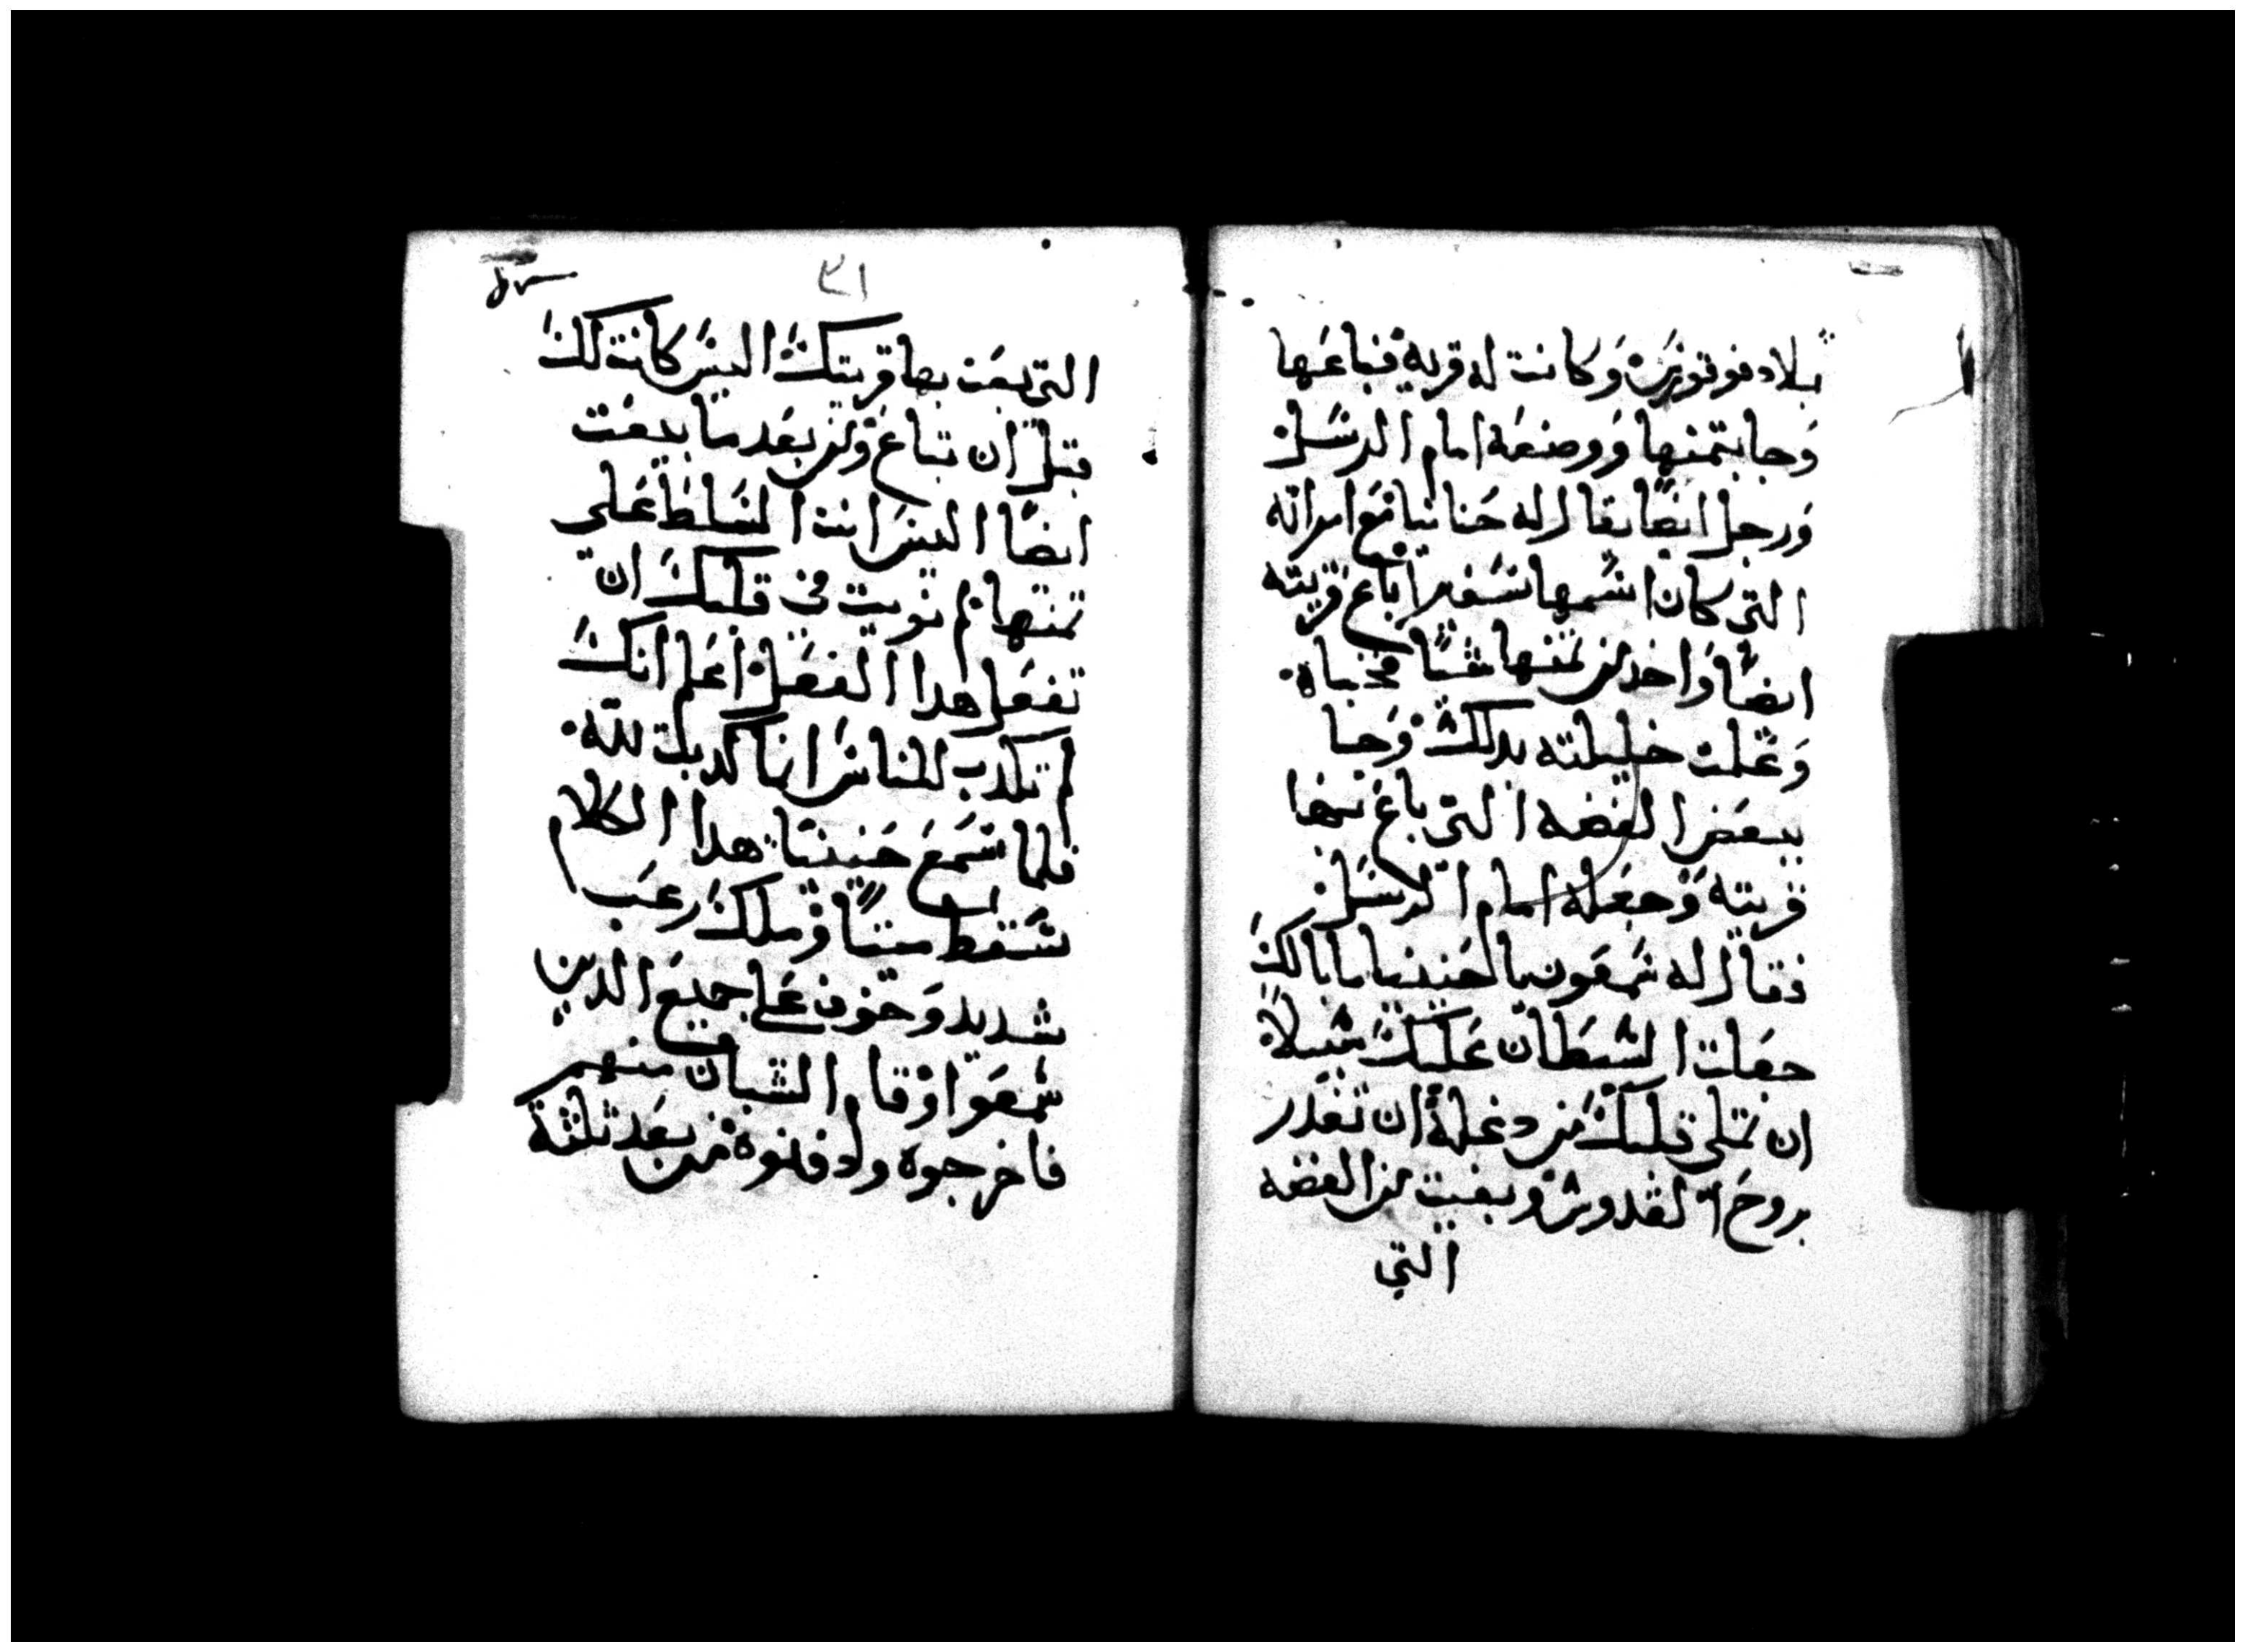 بلاد فوتوترن وكانت له قرية فباعها
وجا بثمنها ووضعه امام الرسل
ورجل ايضا يقال له حنانيا مع امراته
التي كان اسمها سفيرا باع قريته
ايضا واخد من ثمنها شيا مخباه
وعملت خليلته بدلك وجا
ببعض الفضه التي باع بها
قريته وجعله امام الرسل
فقال له شمعون يا حنينيا ما بالك
جعلت الشيطان عليك سبيلا
ان تملي قلبك من دغلة ان تغدر
بروح القدوس وبقيت من الفضه
التي
٣١
التي بعت بها قريتك اليس كانت لك
قبل ان تباع ومن بعد ما بيعت
ايضا اليس انت المسلط على
ثمنها لم نويت في قلبك ان
تفعل هدا الفعل اعلم انك
لم تكدب للناس انما كدبت لله
فلما سمع حنينيا هدا الكلام
سقط ميتا وملك رعب
شديد وخوف على جميع الدين
سمعوا وقام الشبان منهم
فاخرجوه ودفنوه من بعد ثلثة